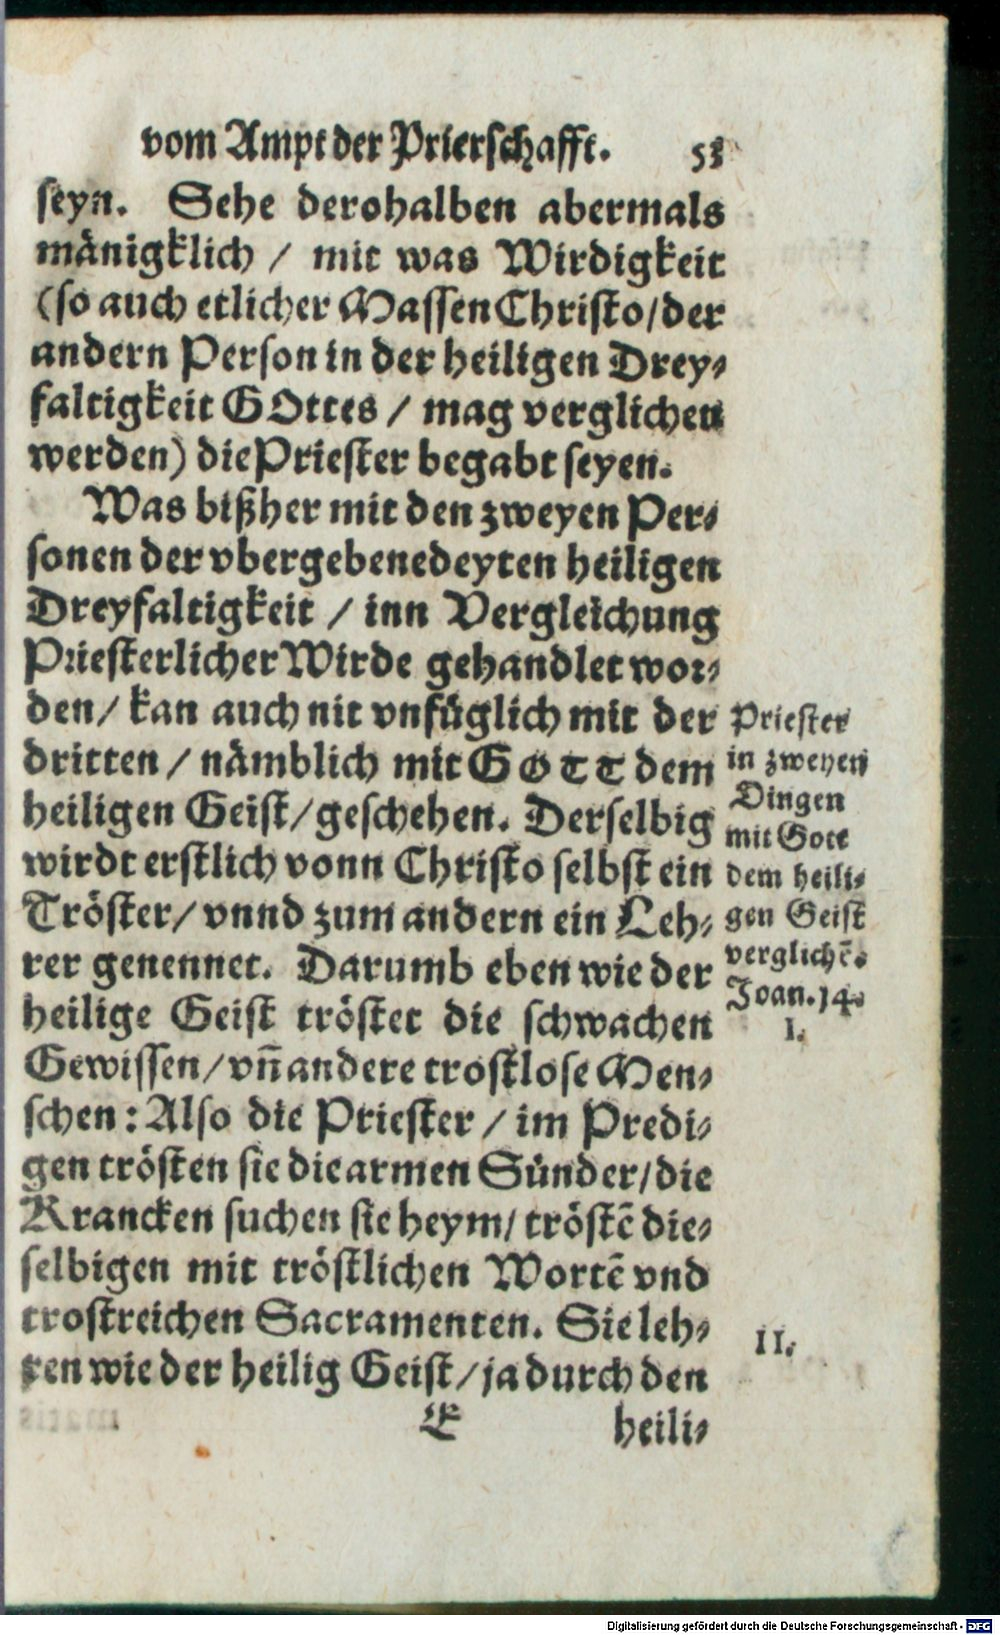 vom Ampt der Prierschafft. 53
seyn. Sehe derohalben abermals
mänigklich / mit was Wirdigkeit
(so auch etlicher Massen Christo/der
andern Person in der heiligen Drey-
faltigkeit GOttes / mag verglichen
werden) die Priester begabt seyen.
Was bißher mit den zweyen Per-
sonen der vbergebenedeyten heiligen
Dreyfaltigkeit / inn Vergleichung
Priesterlicher Wirde gehandlet wor-
den/ kan auch nit vnfüglich mit der
dritten / nämblich mit GOTT dem
heiligen Geist/geschehen. Derselbig
wirdt erstlich vonn Christo selbst ein
Tröster/ vnnd zum andern ein Leh-
rer genennet. Darumb eben wie der
heilige Geist tröstet die schwachen
Gewissen/vñ andere trostlose Men-
schen: Also die Priester / im Predi-
gen trösten sie die armen Sünder/die
Krancken suchen sie heym/ tröstē die-
selbigen mit tröstlichen Wortē vnd
trostreichen Sacramenten. Sie leh-
ren wie der heilig Geist/ja durch den
E heili-
Priester
in zweyen
Dingen
mit Gott
dem heili-
gen Geist
verglichē.
Joan. 14.
I.
II.
Digitalisierung gefördert durch die Deutsche Forschungsgemeinschaft - DFG